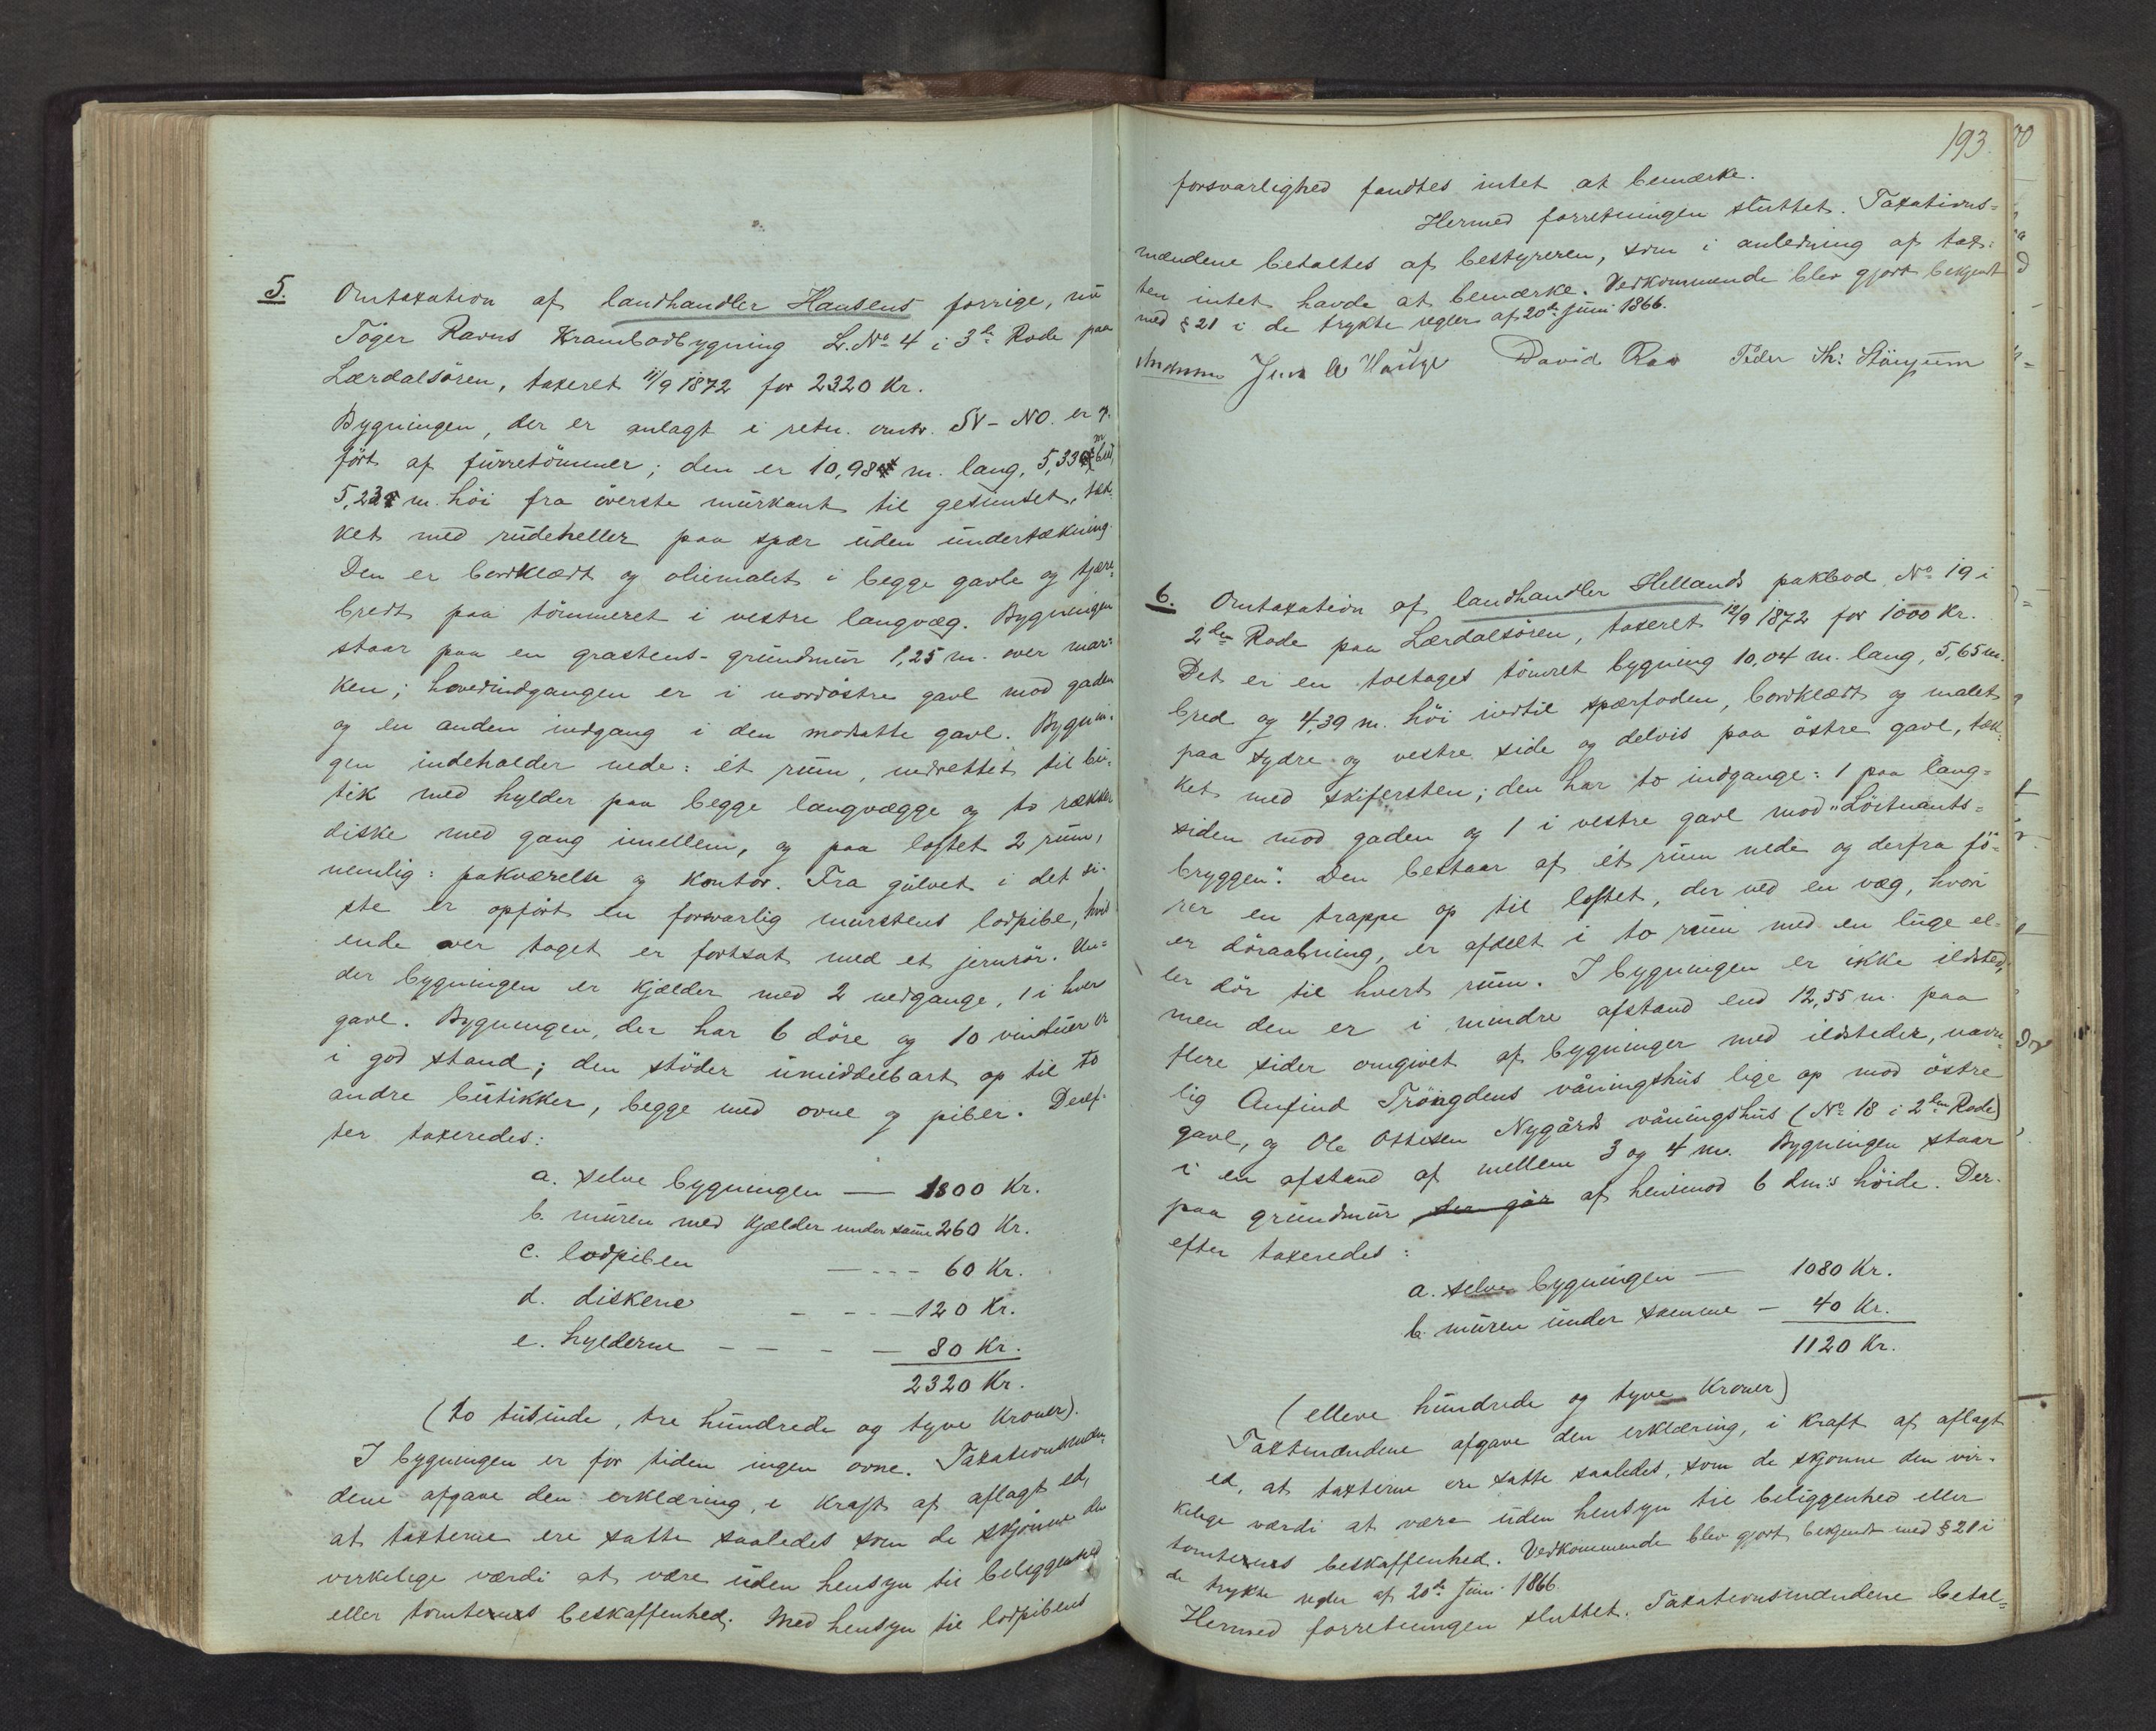 5. Omtaxation af landhandler Hansens forrige, nu
Töger Ravns Krambodbygning L. No 4 i 3de Rode paa
Lærdalsören, taxeret 11/9 1872 for 2320 Kr.
Bygningen, der er anlagt i retn. omtr. SV-NO. er op-
fört af furretömmer; den er 10,98 m. lang, 5,33 m bred,
5,23 m. höi fra överste murkant til gesimset, tæk-
ket med rudeheller paa spær uden undertækning.
Den er bordklædt og oliemalet i begge gavle og tjære-
bredt paa tömmeret i vestre langvæg. Bygningen
staar paa en grastens-grundmur 1,25 m. over mar-
ken; hovedindgangen er i nordöstre gavl mod gaden
og en anden indgang i den modsatte gavl. Bygnin-
gen indeholder nede: ét rum, indrettet til bu-
tik med hylder paa begge langvægge og to rækker
diske med gang imellem, og paa loftet 2 rum,
nemlig: pakværelse og kontor. Fra gulvet i det si-
ste er opfört en forsvarlig murstens lodpibe, hvis
ende over taget er fortsat med et jernrör. Un-
der bygningen er kjælder med 2 nedgange, 1 i hver
gavl. Bygningen, der har 6 döre og 10 vinduer er
i god stand; den stöder umiddelbart op til to
andre butikker, begge med ovne og piber. Deref-
ter taxeredes:
a. selve bygningen — 1800 Kr.
b. muren med kjælder under samme 260 Kr.
c. lodpiben — - - - 60 Kr.
d. diskene - - - 120 Kr.
e. hylderne - - - - 80 Kr.
2320 Kr.
(to tusinde, tre hundrede og tyve Kroner).
I bygningen er for tiden ingen ovne. Taxationsmæn-
dene afgave den erklæring, i kraft af aflagt ed,
at taxterne ere satte saaledes som de skjönne den
virkelige værdi at være uden hensyn til beliggenhed
eller tomternes beskaffenhed. Med hensyn til lodpibens
193.
forsvarlighed fandtes intet at bemærke.
Hermed forretningen sluttet. Taxations-
mændene betaltes af bestyreren, som i anledning af tax-
ten intet havde at bemærke. Vedkommende blev gjort bekjendt
med § 21 i de trykte regler af 20de Juni 1866.
Jens A Hauge David Rav Peder Th: Stönjum
6. Omtaxation af landhandler Hellands pakbod No 19 i
2den Rode paa Lærdalsören, taxeret 12/9 1872 for 1000 Kr.
Det er en toetages tömret bygning 10,04 m. lang, 5,65 m.
bred og 4,39 m. höi indtil spærfoden, bordklædt og malet
paa sydre og vestre side og delvis paa östre gavl, tæk-
ket med skifersten; den har to indgange: 1 paa lang-
siden mod gaden og 1 i vestre gavl mod "Löitnants-
bryggen". Den bestaar af ét rum nede og derfra fö-
rer en trappe op til loftet, der ved en væg, hvori
er döraabning, er afdelt i to rum med en luge el-
ler dör til hvert rum. I bygningen er ikke ildsted,
men den er i mindre afstand end 12,55 m. paa
flere sider omgivet af bygninger med ildsteder, navn-
lig Anfind Tröngdens våningshus lige op mod östre
gavl, og Ole Ottesen Nygårds våningshus (No 18 i 2den Rode)
i en afstand af mellem 3 og 4 m. Bygningen staar
paa grundmur der går af henimod 6 dm:s höide. Der-
efter taxeredes:
a. selve bygningen — 1080 Kr.
b. muren under samme — 40 Kr.
1120 Kr.
(elleve hundrede og tyve Kroner)
Taxtmændene afgave den erklæring, i kraft af aflagt
ed, at taxterne ere satte saaledes, som de skjönne den vir-
kelige værdi at være uden hensyn til beliggenhed eller
tomternes beskaffenhed. Vedkommende blev gjort bekjendt med § 21 i
de trykte regler af 20de Juni 1866.
Hermed forretningen sluttet. Taxationsmændene betal-